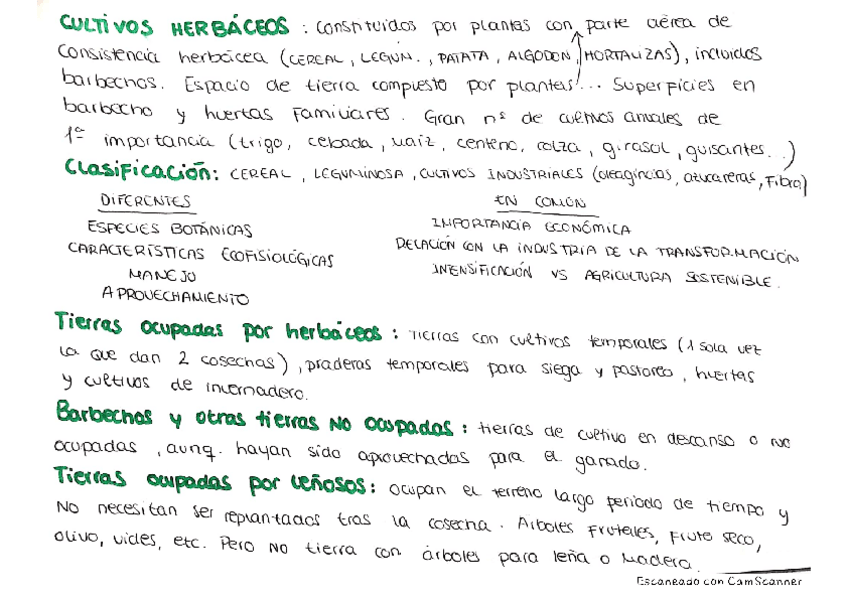 CULTIVOS HERBÁCEOS : constituidos por plantas con parte aérea de
consistencia herbácea (CEREAL, LEGUM., PATATA, ALGODON, HORTALIZAS), incluidos
barbechos. Espacio de tierra compuesto por plantas... Superficies en
barbecho y huertas Familiares. Gran nº de cultivos anuales de
1ª importancia (trigo, cebada, maíz, centeno, colza, girasol, guisantes...)
Clasificación: CEREAL, LEGUMINOSA, CULTIVOS INDUSTRIALES (oleaginosas, azucareras, Fibra)
DIFERENTES
EN COMÚN
ESPECIES BOTÁNICAS
IMPORTANCIA ECONÓMICA
CARACTERÍSTICAS ECOFISIOLÓGICAS
RELACIÓN CON LA INDUSTRIA DE LA TRANSFORMACIÓN
MANEJO
INTENSIFICACIÓN VS AGRICULTURA SOSTENIBLE.
APROVECHAMIENTO
Tierras ocupadas por herbáceos : Tierras con cultivos temporales (1 sola vez
la que dan 2 cosechas), praderas temporales para siega y pastoreo, huertas
y cultivos de invernadero.
Barbechos y otras tierras NO ocupadas : tierras de cultivo en descanso o no
ocupadas, aunq. hayan sido aprovechadas para el ganado.
Tierras ocupadas por leñosos : ocupan el terreno largo periodo de tiempo y
No necesitan ser replantados tras la cosecha. Árboles Frutales, Fruto seco,
olivo, vides, etc. Pero NO tierra con árboles para leña o madera.
Escaneado con CamScanner